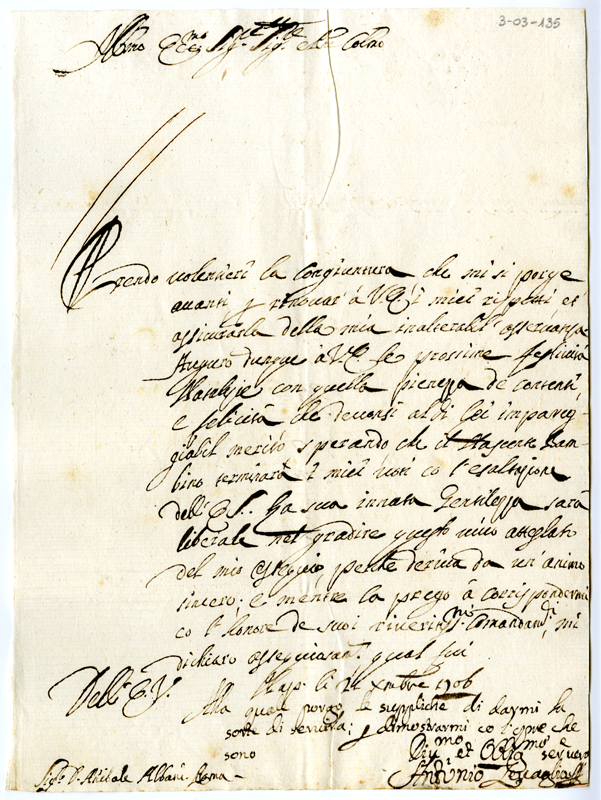 3-03-135
Ill.mo Ecc.mo Sig.re Sig.re
Prendo volentieri la congiuntura che mi si porge
avanti p rinovar à V.E. i miei rispetti et
assicurarla della mia inalterabil' osservanza
Auguro dunque à V.E. le prossime festività
Natalizie con quella pienezza de contenti,
e felicità, che deconsi al di lei impareg-
giabil merito, sperando che il Nascente Bam-
bino terminarà i miei voti co l'esaltazione
dell'E.S. La sua innata Gentilezza sarà
liberale nel gradire questo mio attestato
del mio ossequio, perche deriva da un'animo
sincero; e mentre la prego à corrispondermi
co l'honore de suoi riveritiss.mi Comandam.ti, mi
dichiaro ossequiosam.te qual fui
Dell'E.V. Nap. li 24 Xmbre 1706
Alla qual porgo le suppliche di darmi la
sorte di servirla; p dimostrarmi co l'opre che
sono
Div.mo et Obb.mo servo
Sig.re D. Anibale Albani. Roma
Antonio